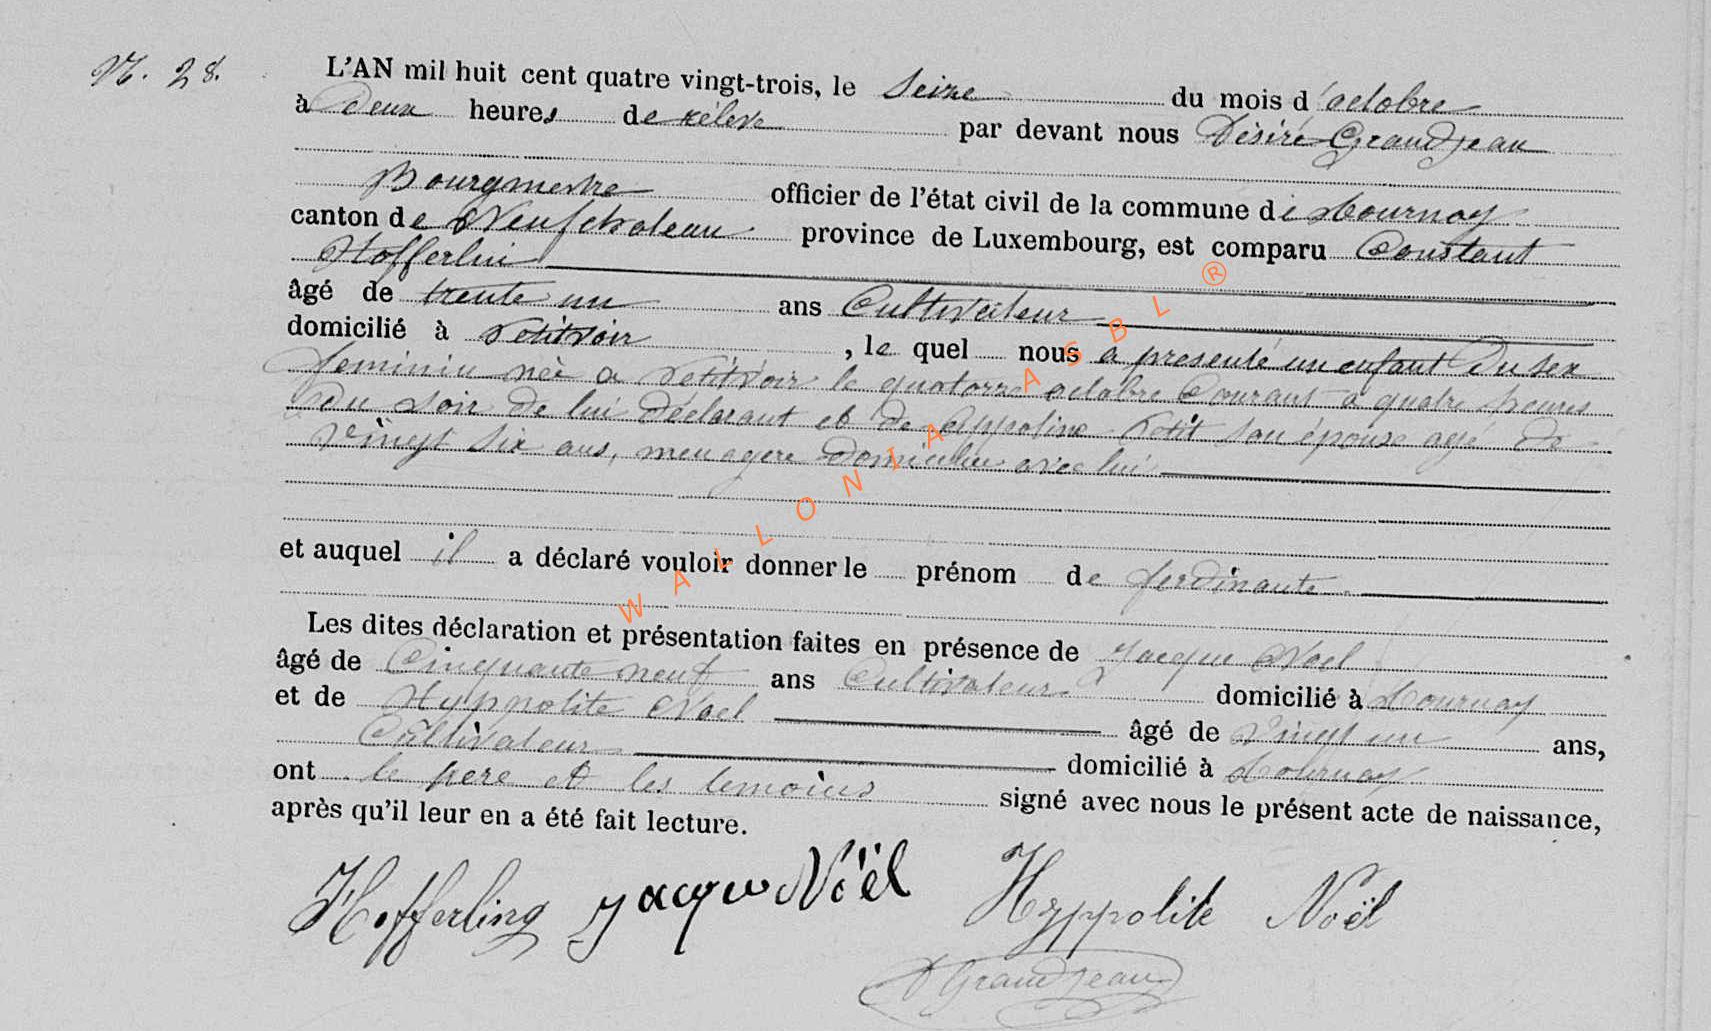 N. 28.
L'AN mil huit cent quatre vingt-trois, le Seize du mois d'octobre
à Deux heures de rélevé par devant nous Désiré Grandjean
Bourgmestre officier de l'état civil de la commune de Tournay
canton de Neufchateau province de Luxembourg, est comparu Constant
Hofferlin
âgé de trente un ans Cultivateur
domicilié à Petitvoir, le quel nous a presenté un enfant Du sex
feminin née a Petitvoir le quatorze octobre Courant a quatre heures
Du soir de lui déclarant et de Appoline Petit son épouse agé de
Vingt six ans, menagere Domiciliée avec lui
et auquel il a déclaré vouloir donner le prénom de ferdinante
Les dites déclaration et présentation faites en présence de Jacque Noel
âgé de Cinquante neuf ans Cultivateur domicilié à Tournay
et de Hyppolite Noel âgé de Vingt un ans,
Cultivateur domicilié à Tournay
ont le pere et les temoins signé avec nous le présent acte de naissance,
après qu'il leur en a été fait lecture.
Hofferling Jacque Noël Hyppolite Noël
D Grandjean
WALLONIA ASBL ®